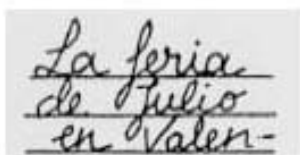 La feria
de Julio
en Valen-